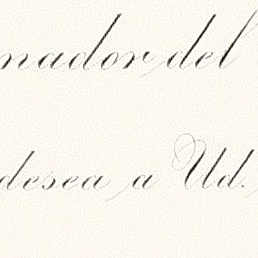 nador, del
desea a Ud.,